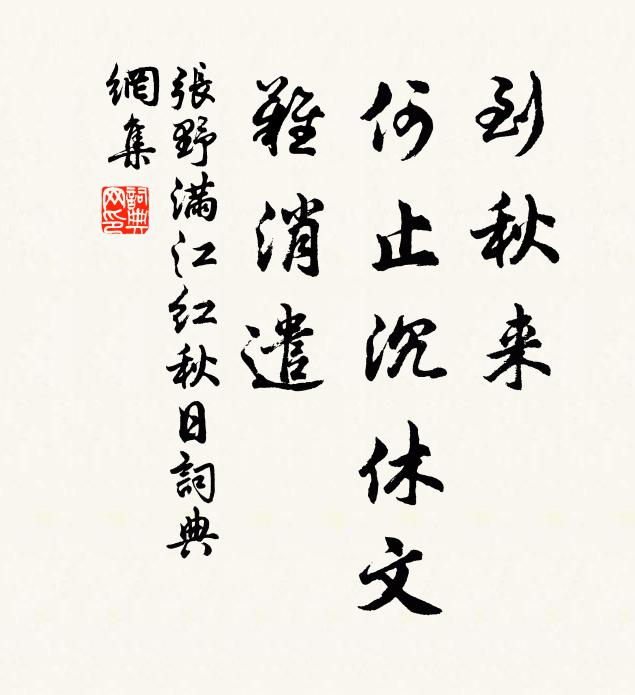 到秋来
何止沉休文
難消遣
張野满江红秋日詞典
網集
詞典
网印